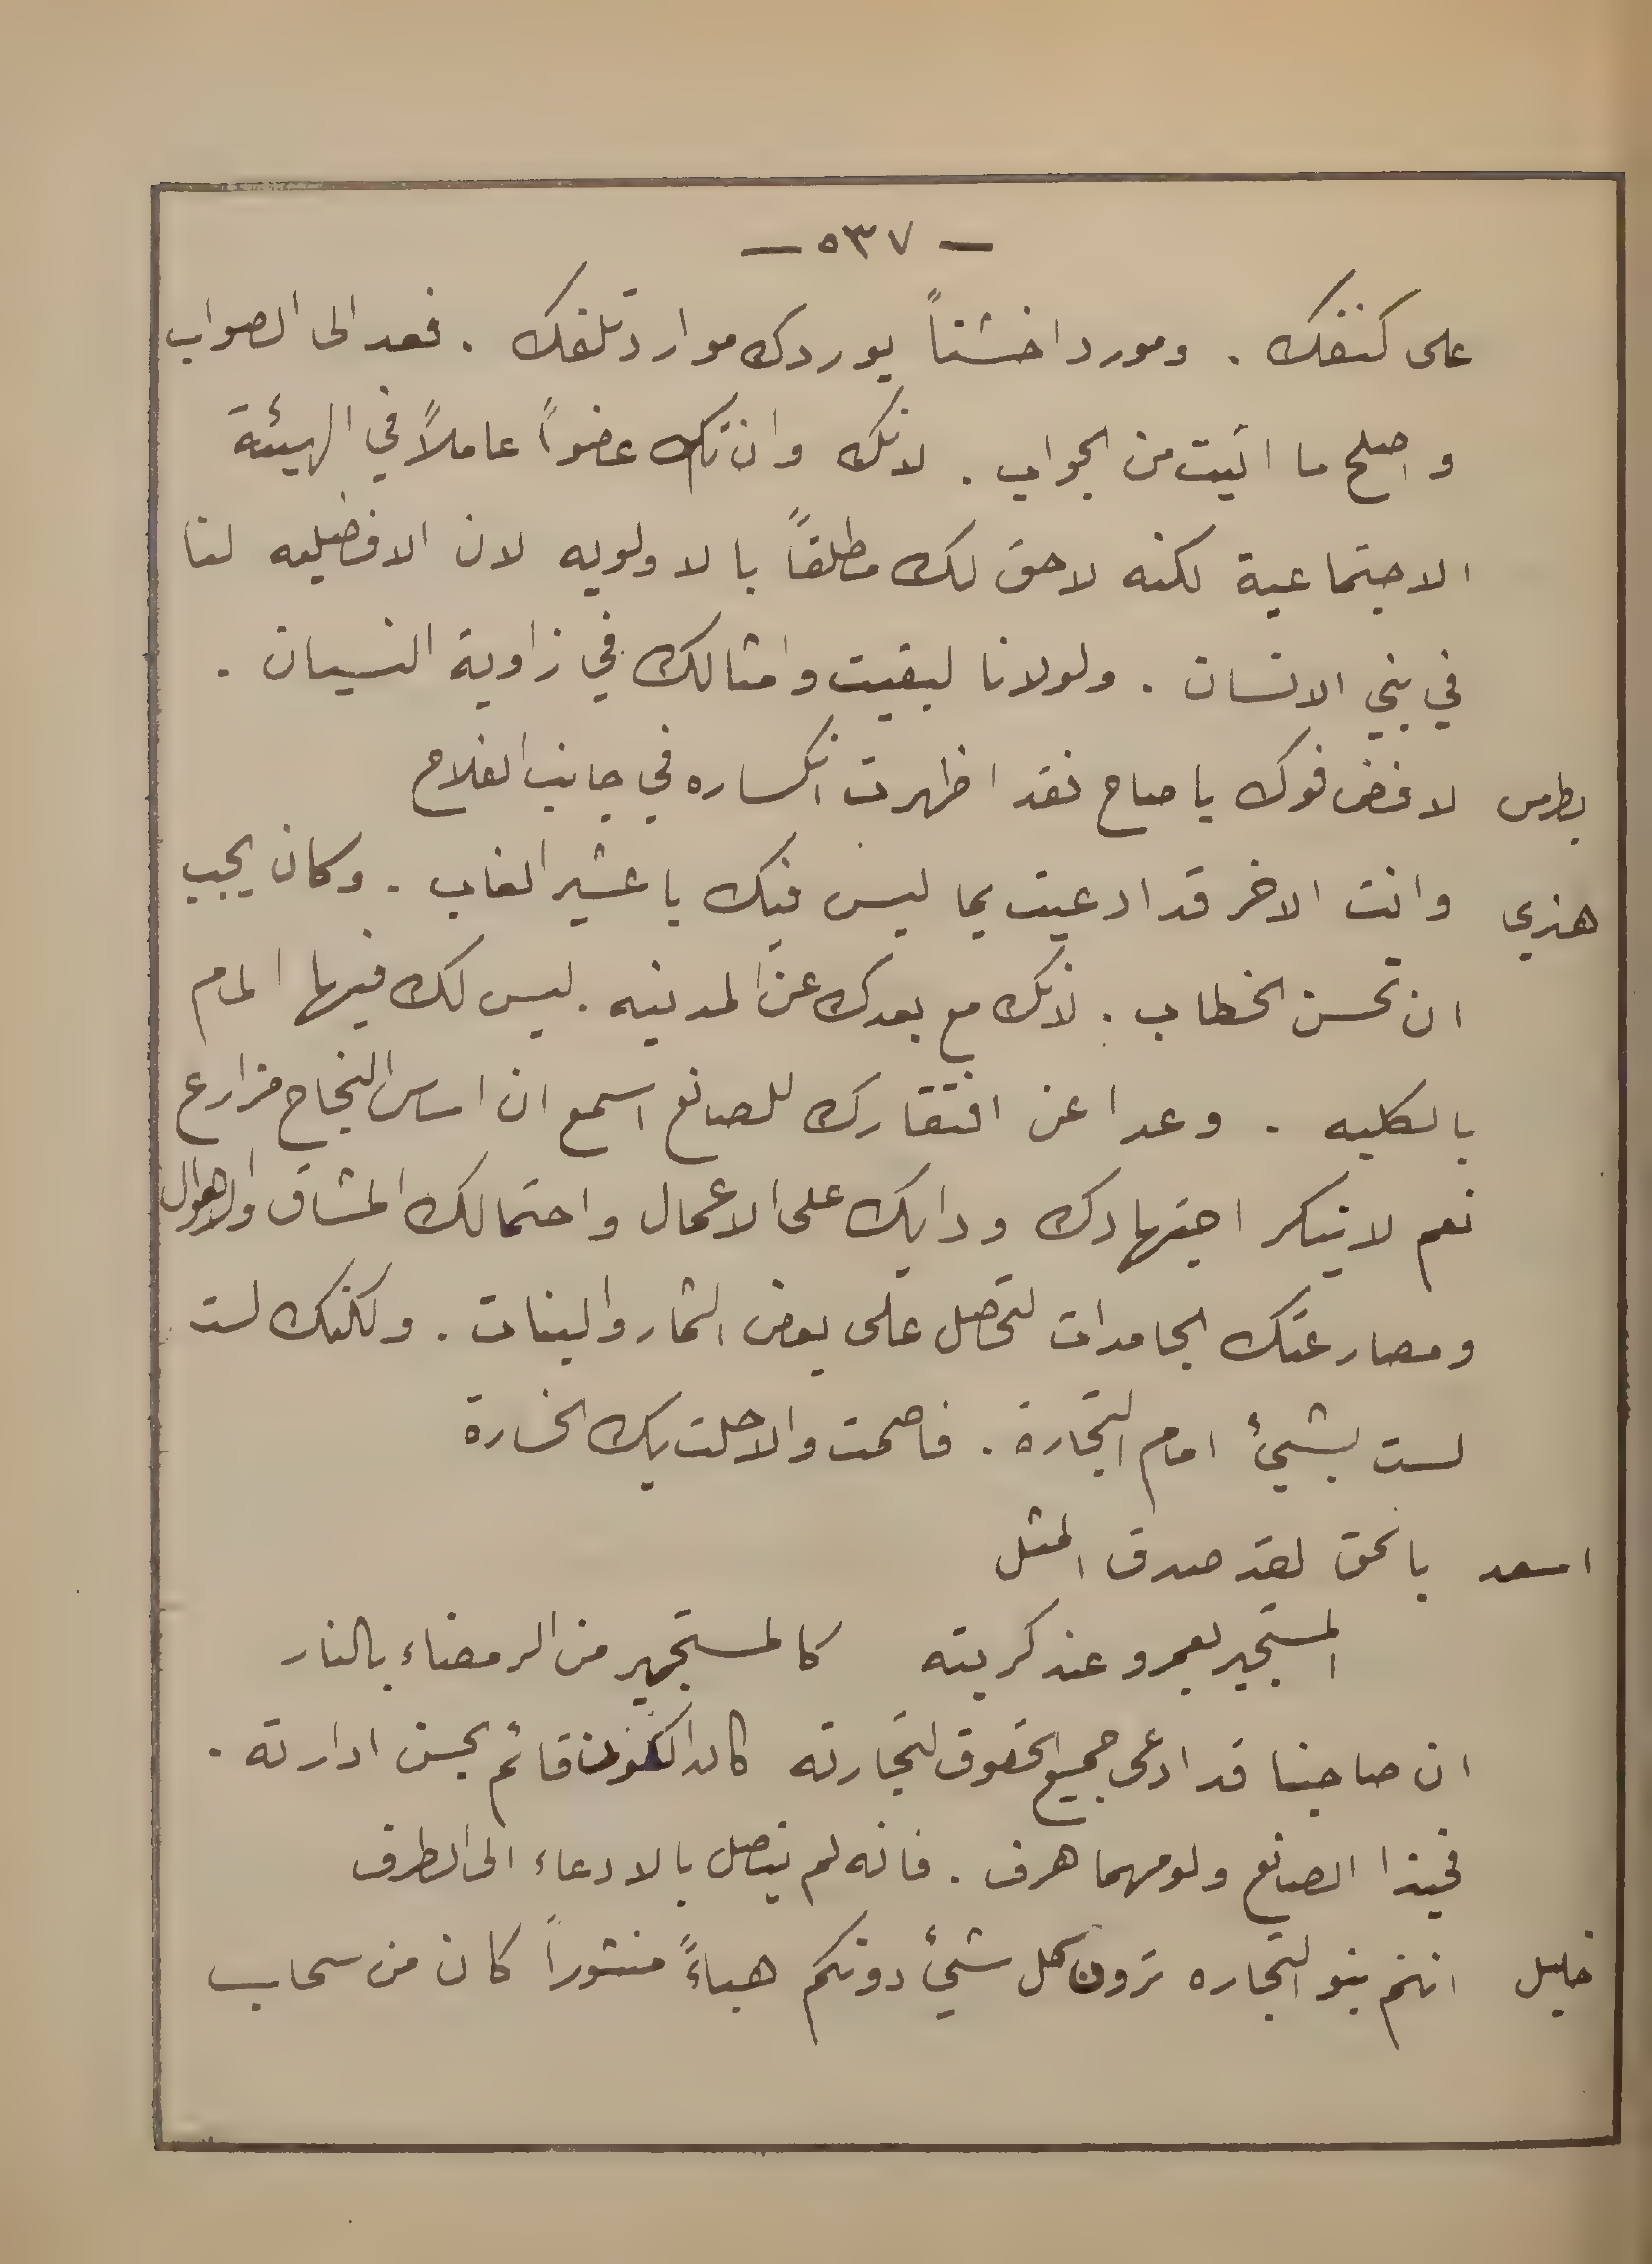 — ٥٣٧ —
على كتفك . ومورداً خشناً يوردك موارد تلفك . فعد الى الصواب
و اصلح ما اتيت من الجواب . لانك وان تك عضواً عاملاً في الهيئة
الاجتماعية لكنه لاحق لك مطلقاً بالاولويه لان الافضليه لنا
في بني الانسان . ولولانا لبقيت وامثالك في زاوية النسيان .
بطرس لا فض فوك يا صاح فقد اظهرت انكساره في جانب الفلاح
هندي وانت الاخر قد ادعيت بما ليس فيك يا عشير الغاب . وكان يجب
ان تحسن الخطاب . لانك مع بعدك عن المدنيه . ليس لك فيها المام
بالكليه . وعدا عن افتقارك للصانع اسمع ان اساس النجاح مزارع
نعم لا ينكر اجتهادك ودابك على الاعمال واحتمالك المشاق والاهوال
ومصارعتك الجامدات لتحصل على بعض الثمار والنبات . ولكنك لست
لست بشيئ امام التجارة . فاصمت والا حلت بك الخسارة
اسعد بالحق لقد صدق المثل
المستجير بعمرو عند كربته كالمستجير من الرمضاء بالنار
ان صاحبنا قد ادعى جميع الحقوق لتجارته كان الكون قائم بحسن ادارته .
فحبذا الصانع ولو مهما هرف . فانه لم يتصل بالادعاء الى الطرف
خليل انتم بنو التجاره ترون كل شيئ دونكم هباءً منثوراً كان من سحاب